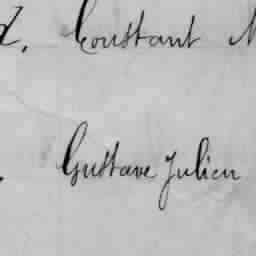 d, Constant
Gustave Julien